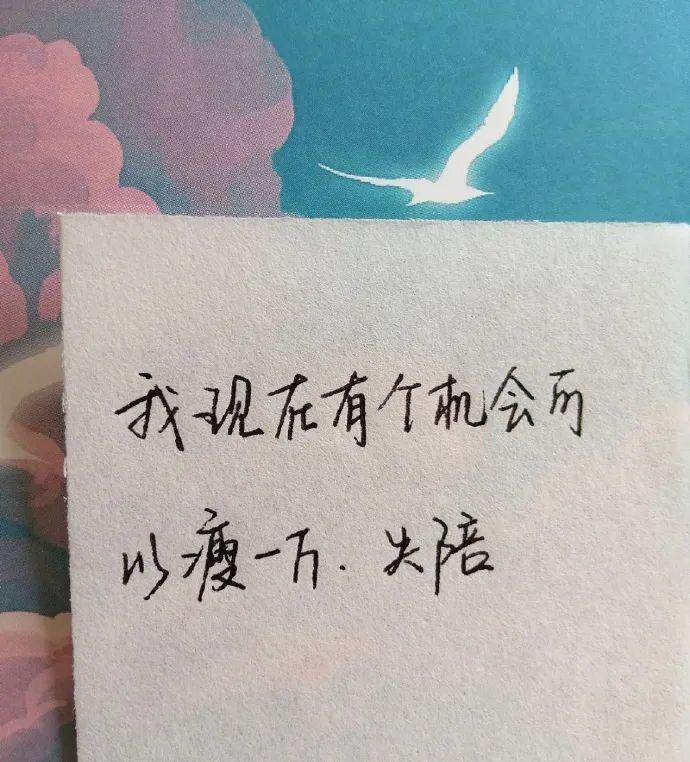 我现在有个机会可
以瘦一下.失陪